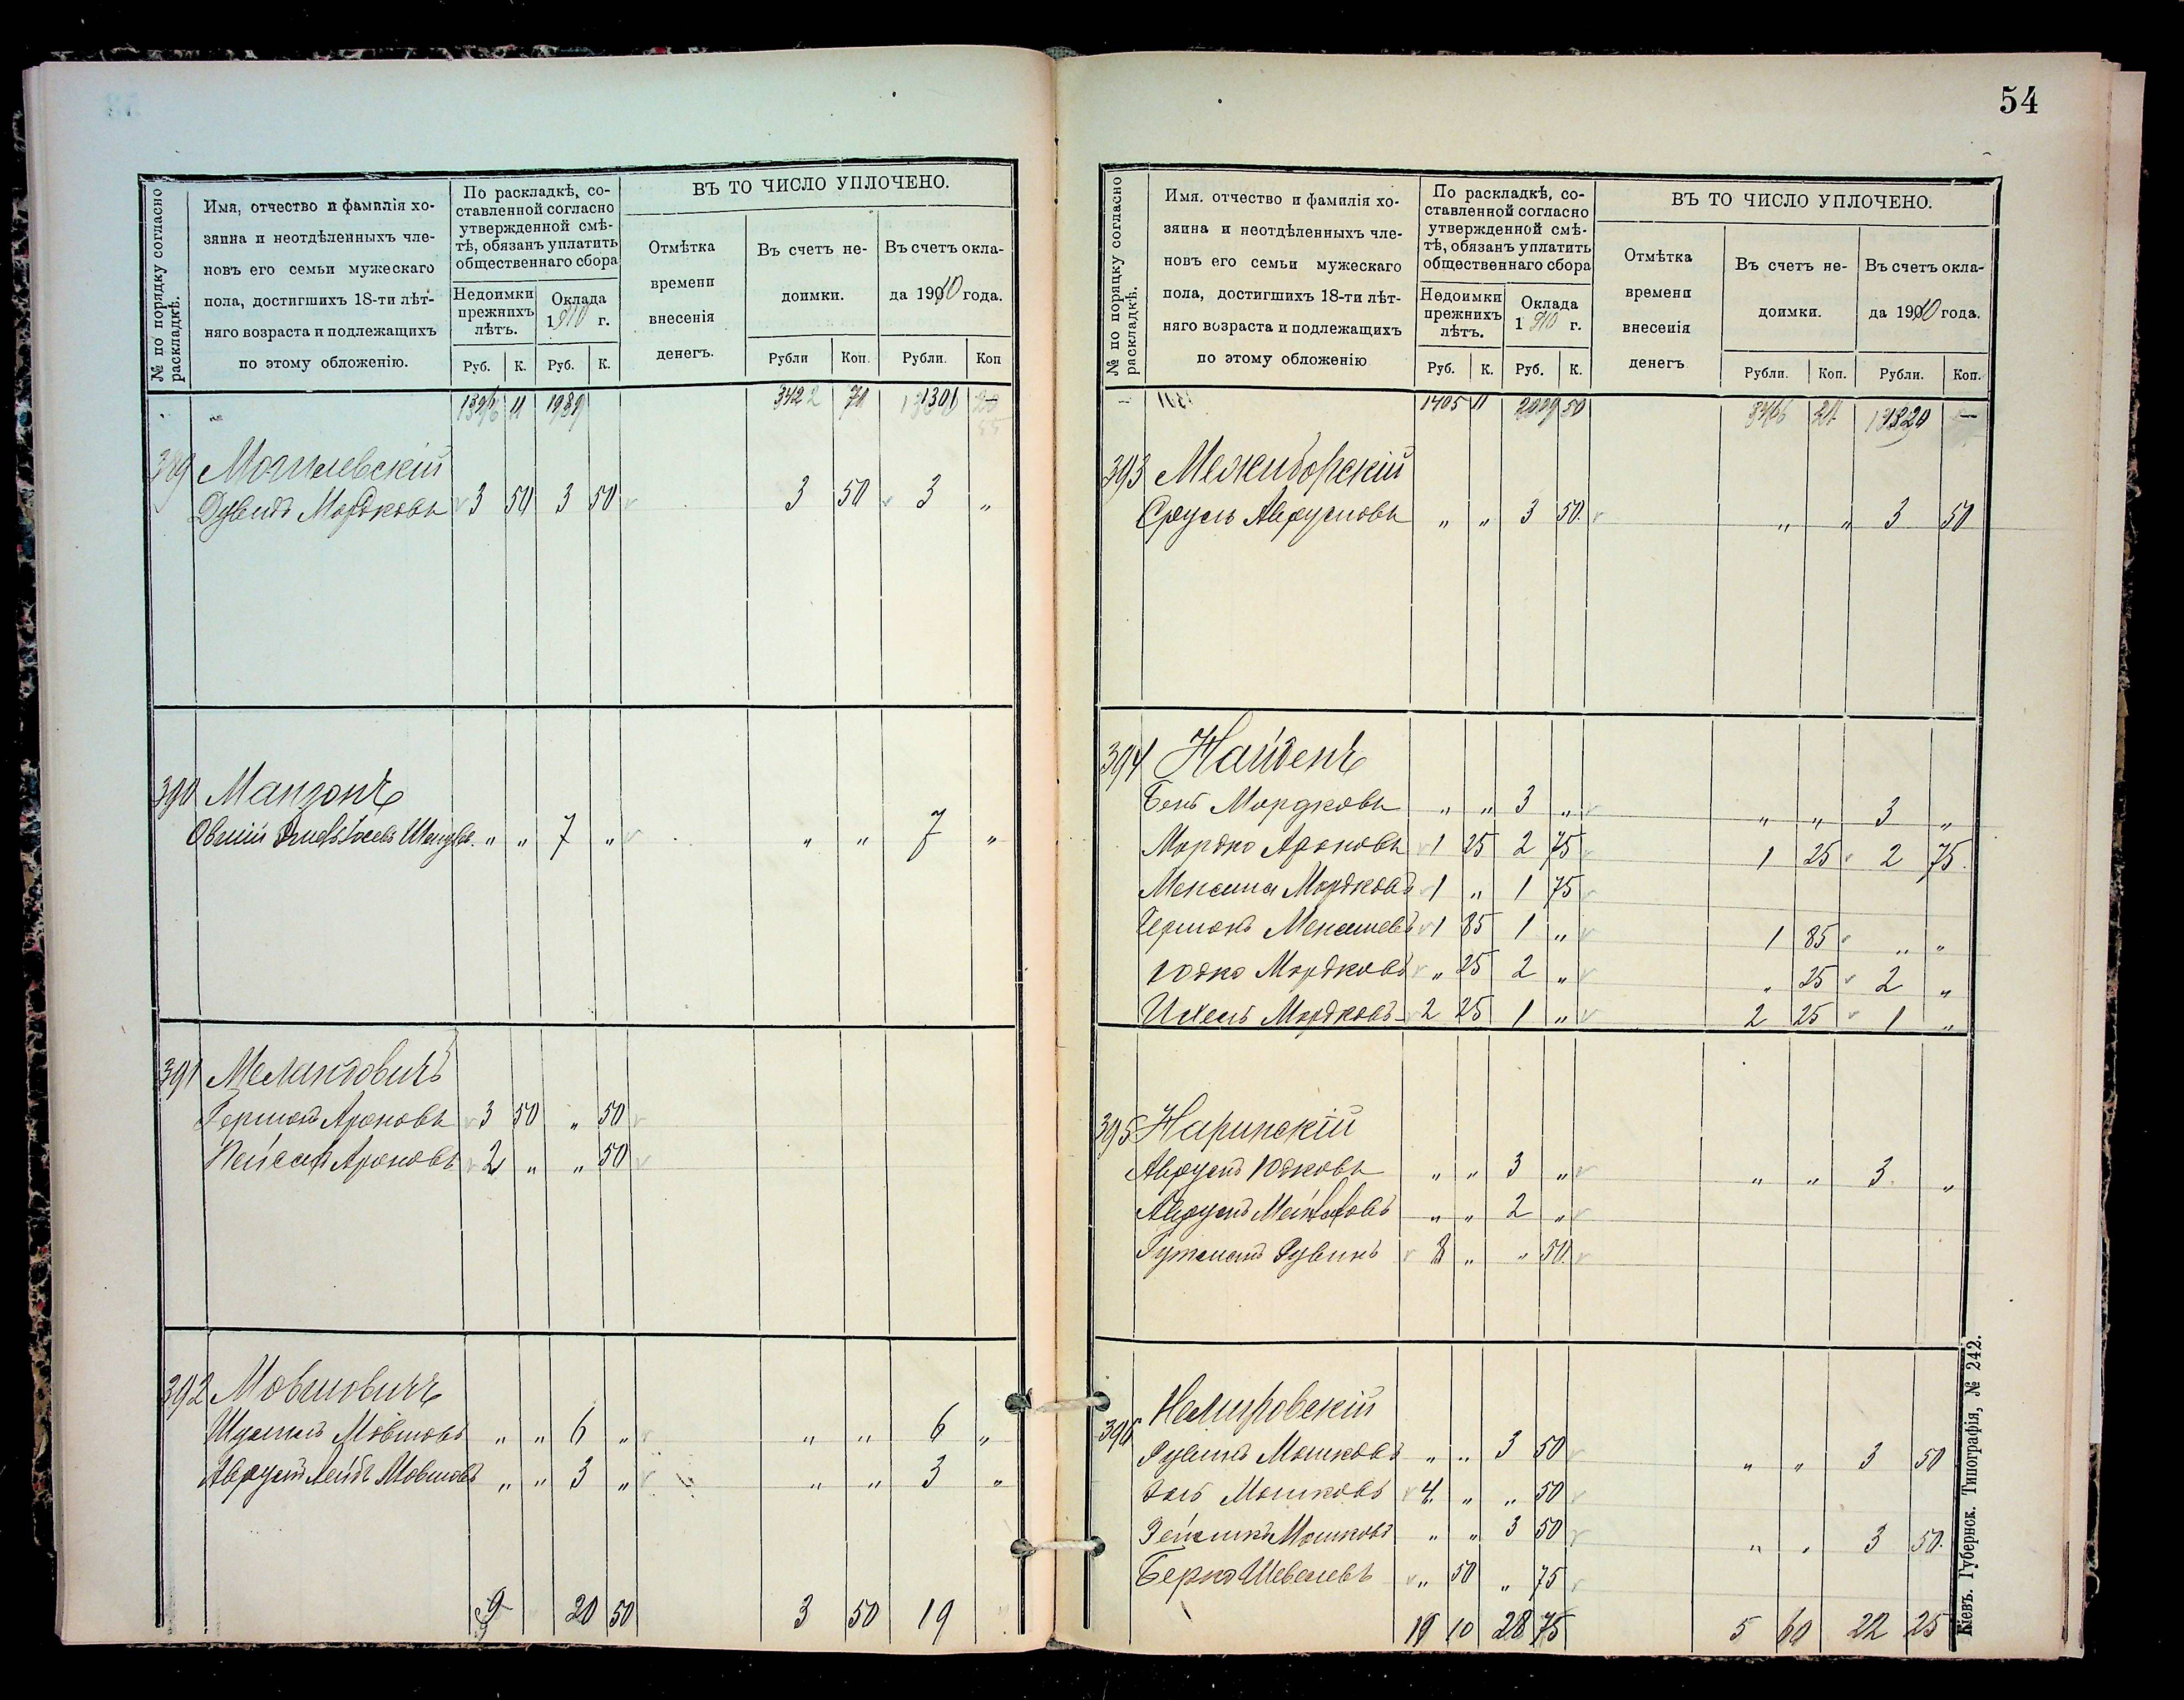 54
№ по порядку согласно раскладкѣ.
Имя, отчество и фамилія хо-
зяина и неотдѣленныхъ чле-
новъ его семьи мужескаго
пола, достигшихъ 18-ти лѣт-
няго возраста и подлежащихъ
по этому обложенію.
По раскладкѣ, со-
ставленной согласно
утвержденной смѣ-
тѣ, обязанъ уплатить
общественнаго сбора
Недоимки прежнихъ лѣтъ.
Оклада 1910 г.
Руб. К. Руб. К.
ВЪ ТО ЧИСЛО УПЛОЧЕНО.
Отмѣтка
времени
внесенія
денегъ.
Въ счетъ не-
доимки.
Въ счетъ окла-
да 1910 года.
Рубли Коп. Рубли. Коп
1396 11 1989 3422 70 1301
389 Могилевскій
Дувидъ Мордковъ 3 50 3 50 3 50 3 "
390 Манзонъ
Овшій " " 7 " " " 7 "
391
Гершонъ Ароновъ 3 50 " 50
Пейсах Ароновъ 2 " " 50
392 Мовшовичъ
Шулимъ Мовшовъ " " 6 " " " 6 "
Аврумъ Лейбъ Мовшовъ " " 3 " " " 3 "
9 20 50 3 50 19
№ по порядку согласно раскладкѣ.
Имя. отчество и фамилія хо-
зяина и неотдѣленныхъ чле-
новъ его семьи мужескаго
пола, достигшихъ 18-ти лѣт-
няго возраста и подлежащихъ
по этому обложенію
По раскладкѣ, со-
ставленной согласно
утвержденной смѣ-
тѣ, обязанъ уплатить
общественнаго сбора
Недоимки прежнихъ лѣтъ.
Оклада 1910 г.
Руб. К. Руб. К.
ВЪ ТО ЧИСЛО УПЛОЧЕНО.
Отмѣтка
времени
внесенія
денегъ
Въ счетъ не-
доимки.
Въ счетъ окла-
да 1910 года.
Рубли. Коп. Рубли. Коп.
1405 11 2029 50 1320 —
393 Межиборскій
Сруль Аврумовъ " " 3 50 " " 3 50
394 Найденъ
Бень Мордковъ " " 3 " " " 3 "
Мордко Ароновъ 1 25 2 75 1 25 2 75
Менаша Мордковъ 1 " 1 75
Гершонъ Менашевъ 1 85 1 " 1 85 " "
Юдко Мордковъ " 25 2 " " 25 2 "
Ихель Мордковъ 2 25 1 " 2 25 1 "
395 Наринскій
Аврумъ Юдковъ " " 3 " " " 3 "
Аврумъ " " 2 "
Гутманъ Рувинъ 8 " " 50
396 Немировскій
Рувинъ Мошковъ " " 3 50 " " 3 50
Мошковъ 4 " " 50
Зейликъ Мошковъ " " 3 50 " " 3 50
Берко Шевелевъ " 50 " 75
19 10 28 75 5 60 22 25
Кіевъ. Губернск. Типографія, № 242.